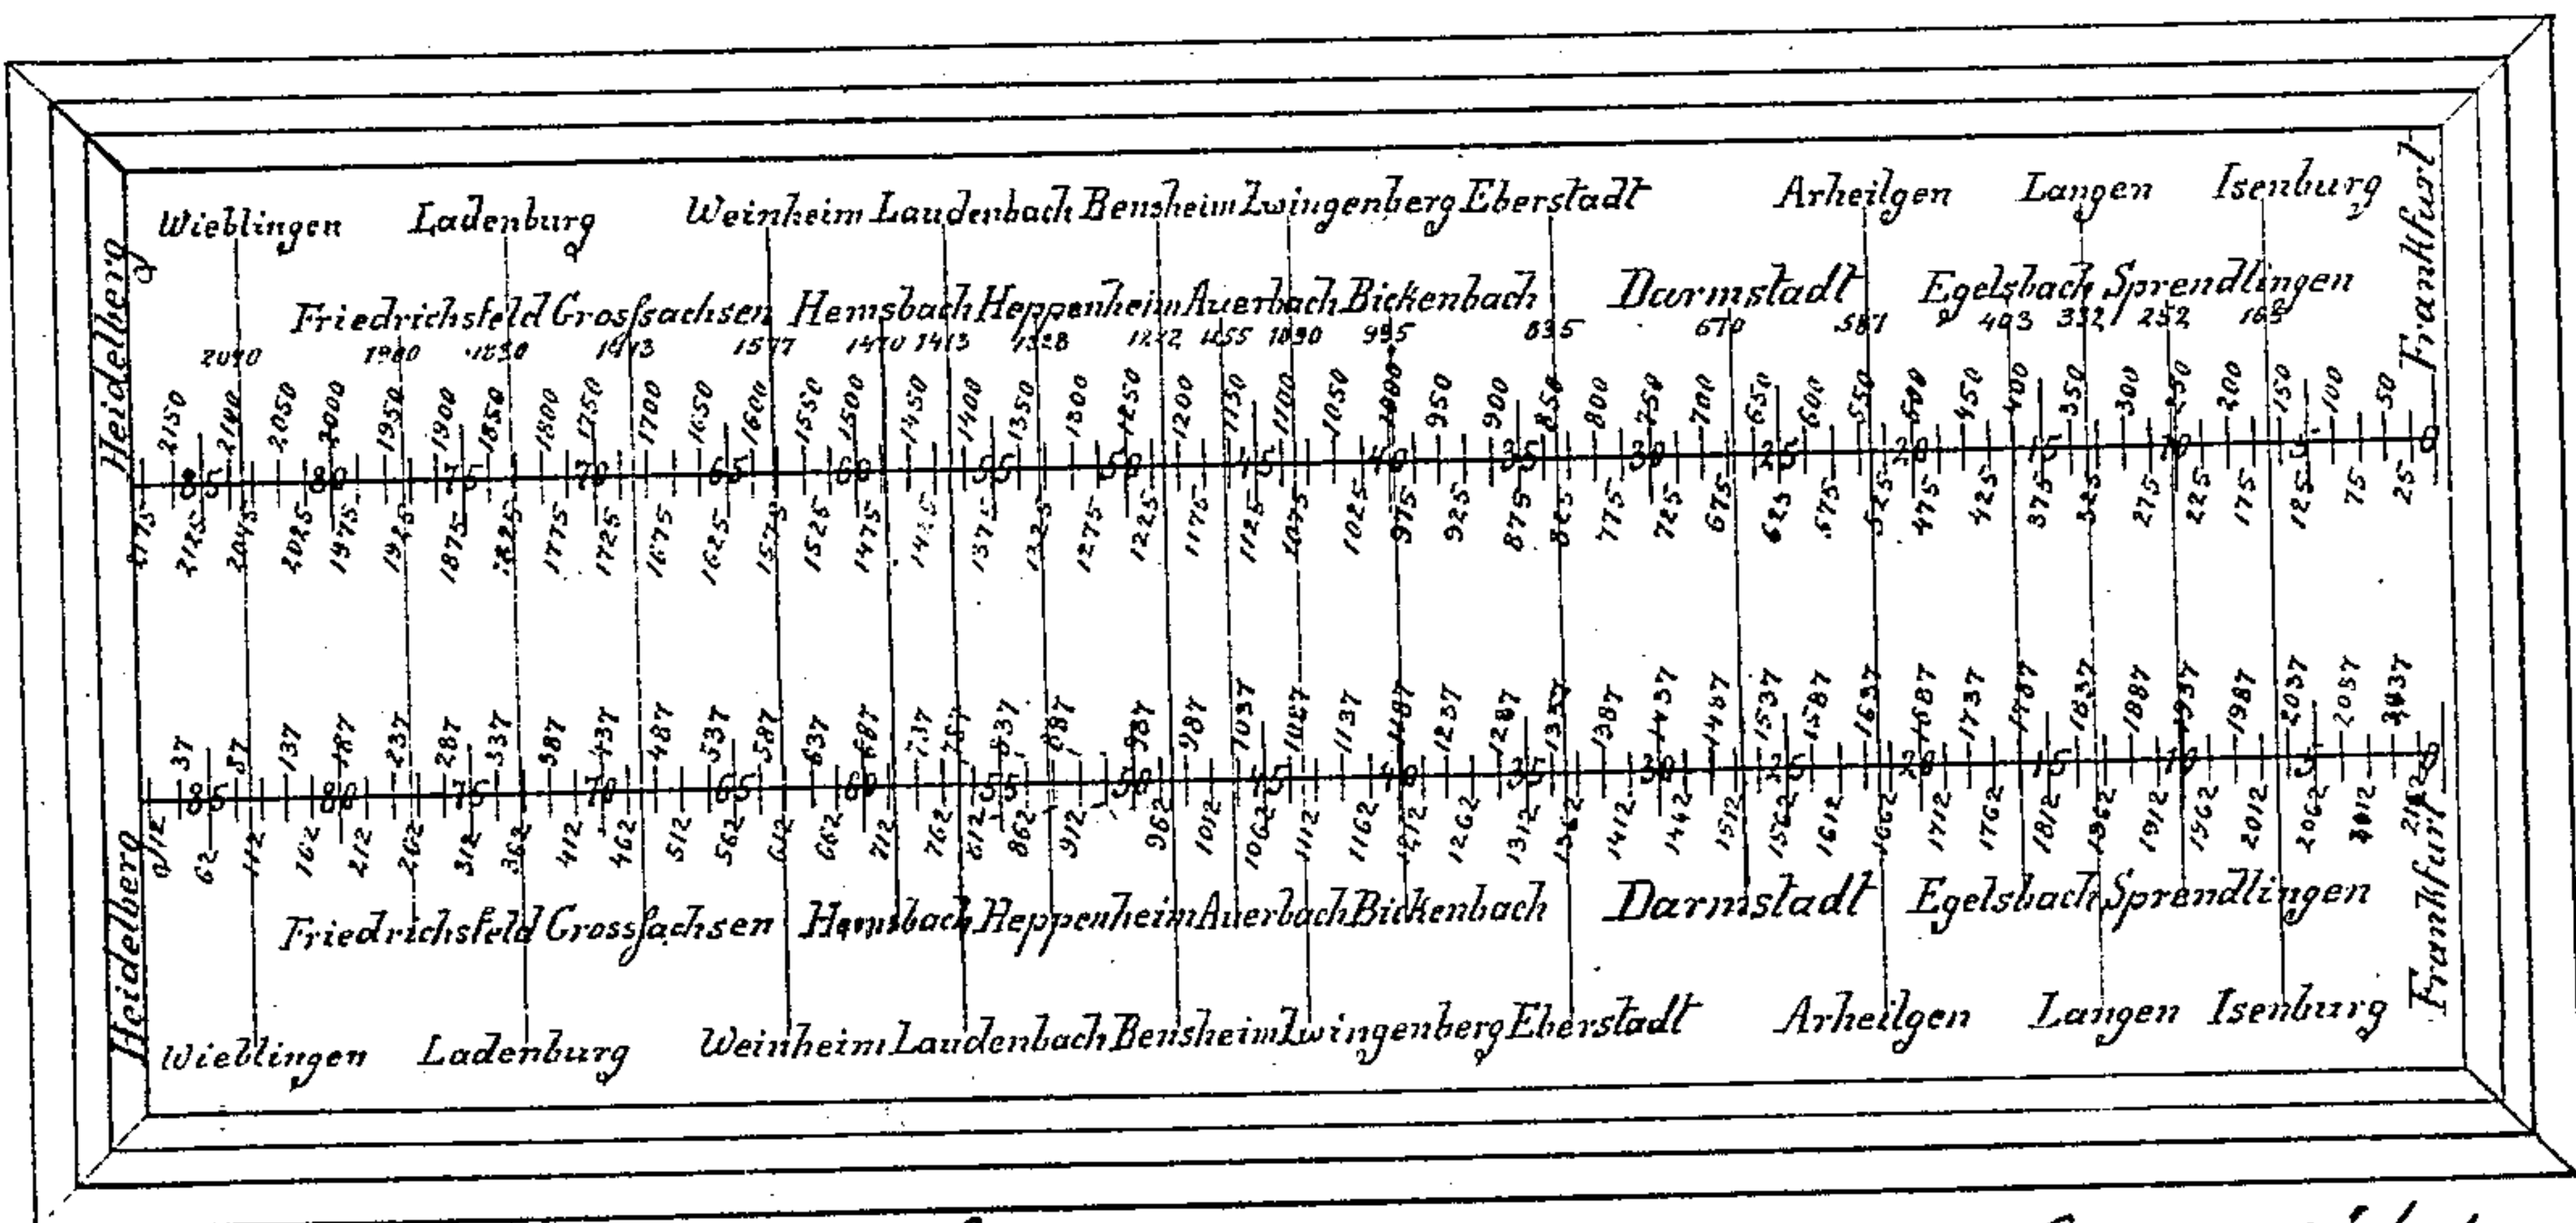 Wieblingen Ladenburg Weinheim Laudenbach Bensheim Zwingenberg Eberstadt Arheilgen Langen Isenburg
Heidelberg
Frankfurt
Friedrichsfeld Grosssachsen Hemsbach Heppenheim Auerbach Bickenbach Darmstadt Egelsbach Sprendlingen
1830 1577 1470 1413 995 835 670 587 403 332 252
2150 2100 2050 2000 1950 1900 1850 1800 1750 1700 1650 1600 1550 1500 1450 1400 1350 1300 1250 1200 1150 1100 1050 1000 950 900 850 800 750 700 650 600 550 500 450 400 350 300 250 200 150 100 50
85 80 75 70 65 60 55 50 45 40 35 30 25 20 15 10 5 0
2175 2125 2025 1975 1925 1875 1825 1775 1725 1675 1625 1575 1525 1475 1425 1375 1325 1275 1225 1175 1125 1075 1025 975 925 875 825 775 725 675 625 575 525 475 425 375 325 275 225 175 125 75 25
37 87 137 187 237 287 337 387 437 487 537 587 637 687 737 787 837 887 937 987 1037 1087 1137 1187 1237 1287 1337 1387 1437 1487 1537 1587 1637 1687 1737 1787 1837 1887 1937 1987 2037 2037
85 80 75 70 65 60 55 50 45 40 35 30 25 20 15 10 5 0
62 112 162 212 262 312 362 412 462 512 562 612 662 712 762 812 862 912 962 1012 1062 1112 1162 1212 1262 1312 1362 1412 1442 1512 1562 1612 1662 1712 1762 1812 1862 1912 1962 2012 2062
Heidelberg
Frankfurt
Friedrichsfeld Grosssachsen Hemsbach Heppenheim Auerbach Bickenbach Darmstadt Egelsbach Sprendlingen
Wieblingen Ladenburg Weinheim Laudenbach Bensheim Zwingenberg Eberstadt Arheilgen Langen Isenburg